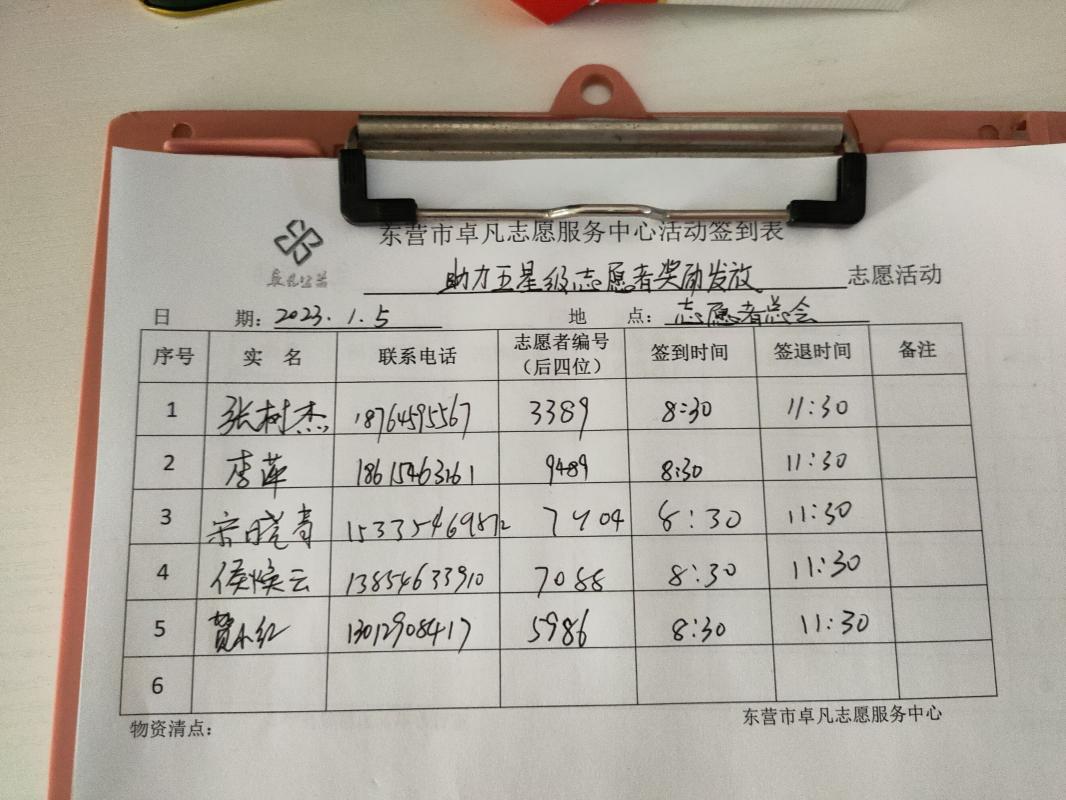 东营市卓凡志愿服务中心活动签到表
卓凡公益
助力五星级志愿者奖励发放 志愿活动
日 期: 2023.1.5 地 点: 志愿者总会
序号 实 名 联系电话 志愿者编号(后四位) 签到时间 签退时间 备注
1 张树杰 18764595567 3389 8:30 11:30
2 李萍 18615463261 9489 8:30 11:30
3 宋晓青 15335469872 7404 8:30 11:30
4 侯焕云 13854633910 7088 8:30 11:30
5 贾小红 13012908417 5986 8:30 11:30
6
物资清点: 东营市卓凡志愿服务中心